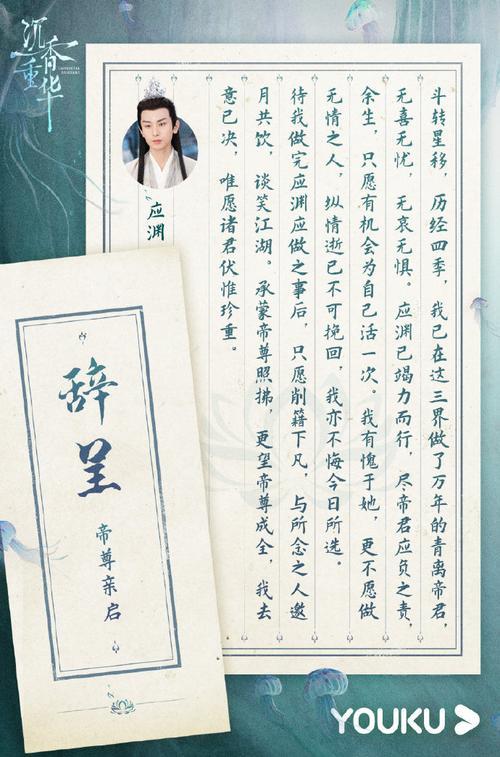 沉香重华
应渊
斗转星移，历经四季，我已在这三界做了万年的青离帝君，
无喜无忧，无哀无惧。应渊已竭力而行，尽帝君应负之责，
余生，只愿有机会为自己活一次。我有愧于她，更不愿做
无情之人，纵情逝已不可挽回，我亦不悔今日所选。
待我做完应渊应做之事后，只愿削籍下凡，与所念之人邀
月共饮，谈笑江湖。承蒙帝尊照拂，更望帝尊成全，我去
意已决，唯愿诸君伏惟珍重。
辞呈
帝尊亲启
YOUKU